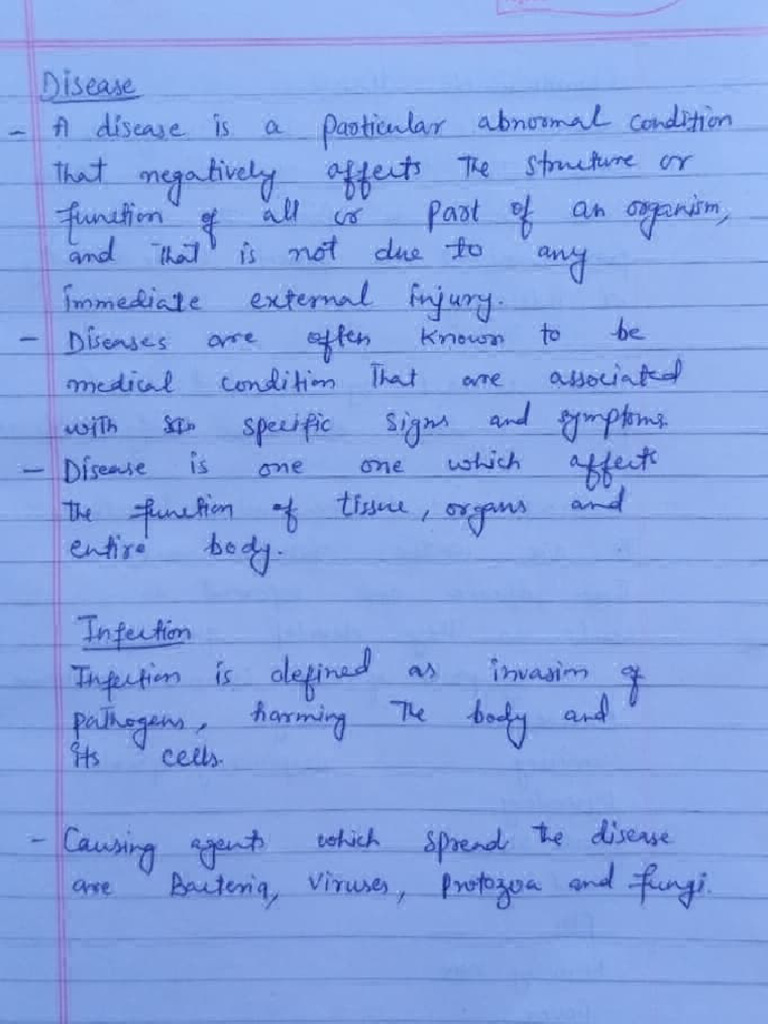 Disease
- A disease is a particular abnormal condition
that negatively affects the structure or
function of all or part of an organism,
and that is not due to any
immediate external injury.
- Diseases are often known to be
medical condition that are associated
with specific signs and symptoms.
- Disease is one one which affects
the function of tissue, organs and
entire body.
Infection
Infection is defined as invasion of
pathogens, harming the body and
its cells.
- Causing agents which spread the disease
are Bacteria, Viruses, Protozoa and fungi.